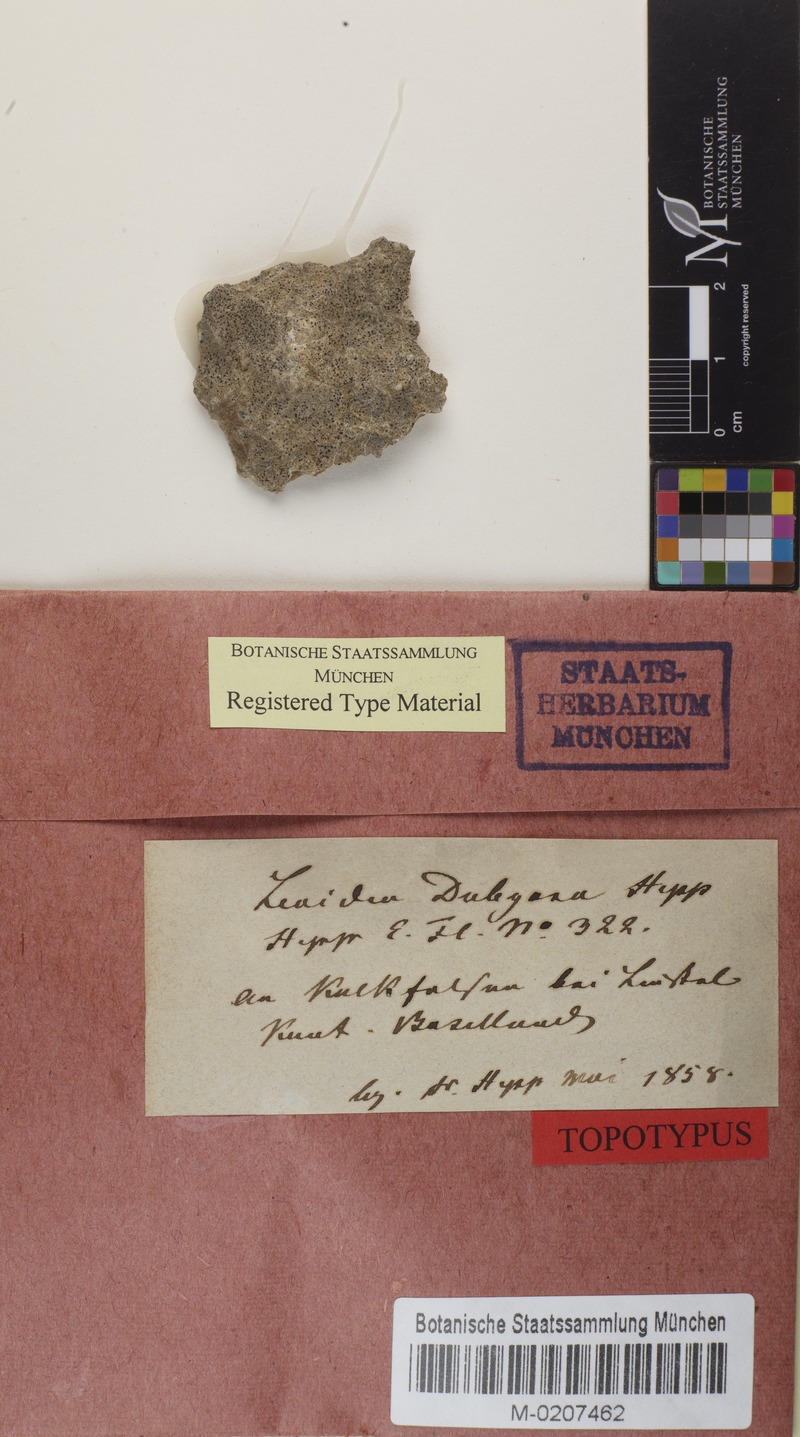 BOTANISCHE
STAATSSAMMLUNG
MÜNCHEN
M
2
1
0
cm
copyright reserved
BOTANISCHE STAATSSAMMLUNG
MÜNCHEN
Registered Type Material
STAATS-
HERBARIUM
MÜNCHEN
Lecidea Hepp
Hepp E. Fl. No 322.
an Kalkfelsen bei Liestal
Kant. Baselland
leg. Dr. Hepp Mai 1858.
TOPOTYPUS
Botanische Staatssammlung München
M-0207462